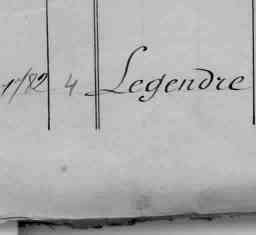 1782 4 Legendre